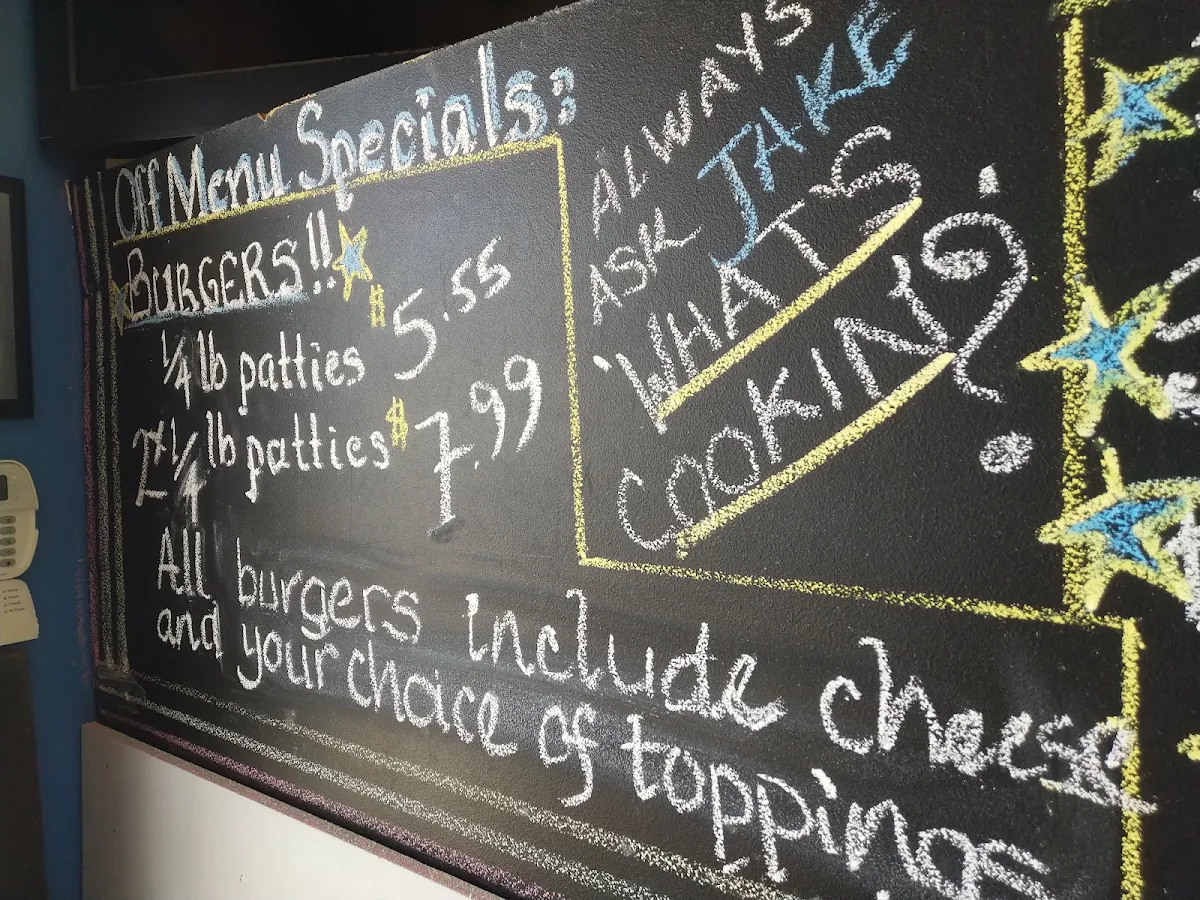 Off Menu Specials:
BURGERS!!
1/4 lb patties $5.55
2x 1/4 lb patties $7.99
All burgers include cheese
and your choice of toppings
ALWAYS
ASK JAKE
'WHAT'S
COOKIN'?